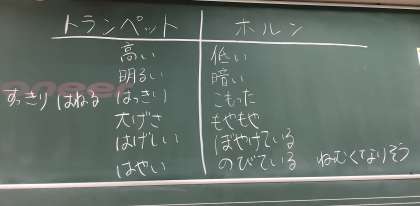 トランペット ホルン
高い 低い
明るい 暗い
すっきり はねる はっきり こもった
大げさ もやもや
はげしい ぼやけている
はやい のびている ねむくなりそう